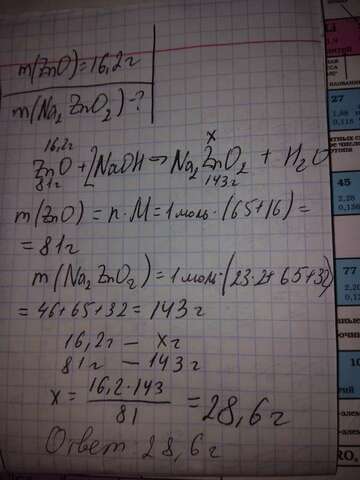 m(ZnO)=16,2г
m(Na₂ZnO₂)-?
16,2г x
ZnO+2NaOH→Na₂ZnO₂ + H₂O
81г 143г
m(ZnO)=n·M=1моль·(65+16)=
=81г
m(Na₂ZnO₂)=1моль·(23·2+65+32)
=46+65+32=143г
16,2г — xг
81г — 143г
x = 16,2·143/81 = 28,6г
Ответ: 28,6г
27
45
77